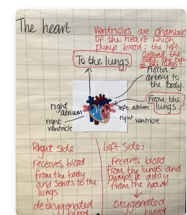 The heart
Ventricles are chambers
of the heart which
pump blood: the left,
around the
To the lungs
Aorta:
artery to
the body.
From the
lungs
right
atrium
left atrium
right
ventricle
right ventricle
Right side
Left side:
receives blood
from the body
and sends to the
lungs
receives blood
from the lungs and
pumps it
from the heart
deoxygenated
Oxygenated
blood